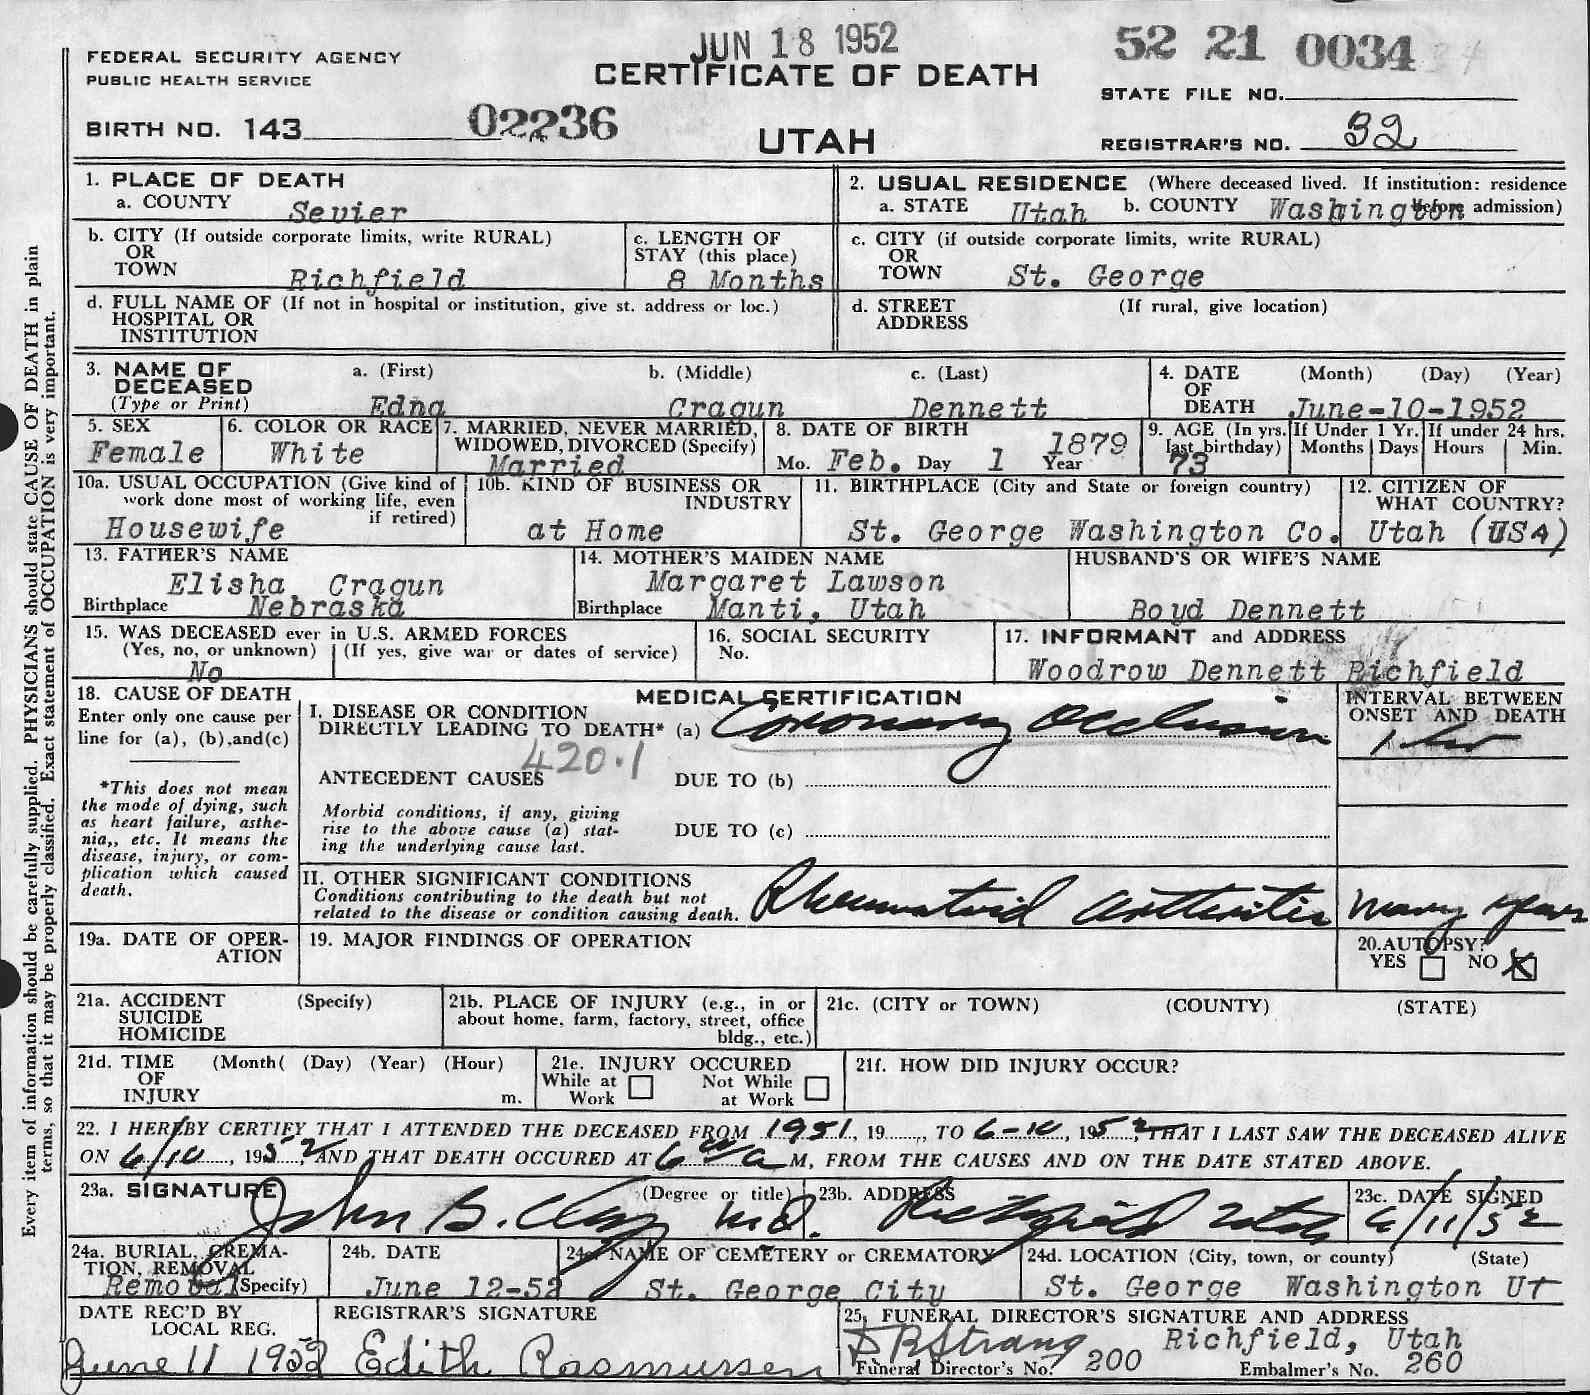 JUN 18 1952
52 21 0034 34
FEDERAL SECURITY AGENCY
PUBLIC HEALTH SERVICE
CERTIFICATE OF DEATH
STATE FILE NO.
BIRTH NO. 143 02236
UTAH
REGISTRAR'S NO. 32
Every item of information should be carefully supplied. PHYSICIANS should state CAUSE OF DEATH in plain
terms, so that it may be properly classified. Exact statement of OCCUPATION is very important.
1. PLACE OF DEATH
a. COUNTY Sevier
2. USUAL RESIDENCE (Where deceased lived. If institution: residence
before admission)
a. STATE Utah b. COUNTY Washington
b. CITY (If outside corporate limits, write RURAL)
OR
TOWN Richfield
c. LENGTH OF
STAY (this place)
8 Months
c. CITY (if outside corporate limits, write RURAL)
OR
TOWN St. George
d. FULL NAME OF (If not in hospital or institution, give st. address or loc.)
HOSPITAL OR
INSTITUTION
d. STREET (If rural, give location)
ADDRESS
3. NAME OF
DECEASED
(Type or Print)
a. (First) b. (Middle) c. (Last)
Edna Cragun Dennett
4. DATE (Month) (Day) (Year)
OF
DEATH June-10-1952
5. SEX
Female
6. COLOR OR RACE
White
7. MARRIED, NEVER MARRIED,
WIDOWED, DIVORCED (Specify)
Married
8. DATE OF BIRTH
Mo. Feb. Day 1 Year 1879
9. AGE (In yrs.
last birthday)
73
If Under 1 Yr.
Months Days
If under 24 hrs.
Hours Min.
10a. USUAL OCCUPATION (Give kind of
work done most of working life, even
if retired)
Housewife
10b. KIND OF BUSINESS OR
INDUSTRY
at Home
11. BIRTHPLACE (City and State or foreign country)
St. George Washington Co.
12. CITIZEN OF
WHAT COUNTRY?
Utah (USA)
13. FATHER'S NAME
Elisha Cragun
Birthplace Nebraska
14. MOTHER'S MAIDEN NAME
Margaret Lawson
Birthplace Manti, Utah
HUSBAND'S OR WIFE'S NAME
Boyd Dennett
15. WAS DECEASED ever in U.S. ARMED FORCES
(Yes, no, or unknown) (If yes, give war or dates of service)
No
16. SOCIAL SECURITY
No.
17. INFORMANT and ADDRESS
Woodrow Dennett Richfield
18. CAUSE OF DEATH
Enter only one cause per
line for (a), (b), and (c)
*This does not mean
the mode of dying, such
as heart failure, asthe-
nia,, etc. It means the
disease, injury, or com-
plication which caused
death.
MEDICAL CERTIFICATION
I. DISEASE OR CONDITION
DIRECTLY LEADING TO DEATH* (a) Coronary Occlusion
420.1
ANTECEDENT CAUSES DUE TO (b)
Morbid conditions, if any, giving
rise to the above cause (a) stat-
ing the underlying cause last.
DUE TO (c)
INTERVAL BETWEEN
ONSET AND DEATH
1 hr
II. OTHER SIGNIFICANT CONDITIONS
Conditions contributing to the death but not
related to the disease or condition causing death.
Rheumatoid arthritis many years
19a. DATE OF OPER-
ATION
19. MAJOR FINDINGS OF OPERATION
20. AUTOPSY?
YES NO X
21a. ACCIDENT (Specify)
SUICIDE
HOMICIDE
21b. PLACE OF INJURY (e.g., in or
about home, farm, factory, street, office
bldg., etc.)
21c. (CITY or TOWN) (COUNTY) (STATE)
21d. TIME (Month( (Day) (Year) (Hour)
OF
INJURY m.
21e. INJURY OCCURED
While at Work Not While at Work
21f. HOW DID INJURY OCCUR?
22. I HEREBY CERTIFY THAT I ATTENDED THE DECEASED FROM 1951, 19......, TO 6-10, 1952, THAT I LAST SAW THE DECEASED ALIVE
ON 6/10, 1952, AND THAT DEATH OCCURED AT 6 a M, FROM THE CAUSES AND ON THE DATE STATED ABOVE.
23a. SIGNATURE (Degree or title)
John B. Clay M.D.
23b. ADDRESS
Richfield Utah
23c. DATE SIGNED
6/11/52
24a. BURIAL, CREMA-
TION, REMOVAL
Removal (Specify)
24b. DATE
June 12-52
24c. NAME OF CEMETERY or CREMATORY
St. George City
24d. LOCATION (City, town, or county) (State)
St. George Washington UT
DATE REC'D BY
LOCAL REG.
June 11 1952
REGISTRAR'S SIGNATURE
Edith Rasmussen
25. FUNERAL DIRECTOR'S SIGNATURE AND ADDRESS
Strang Richfield, Utah
Funeral Director's No. 200 Embalmer's No. 260